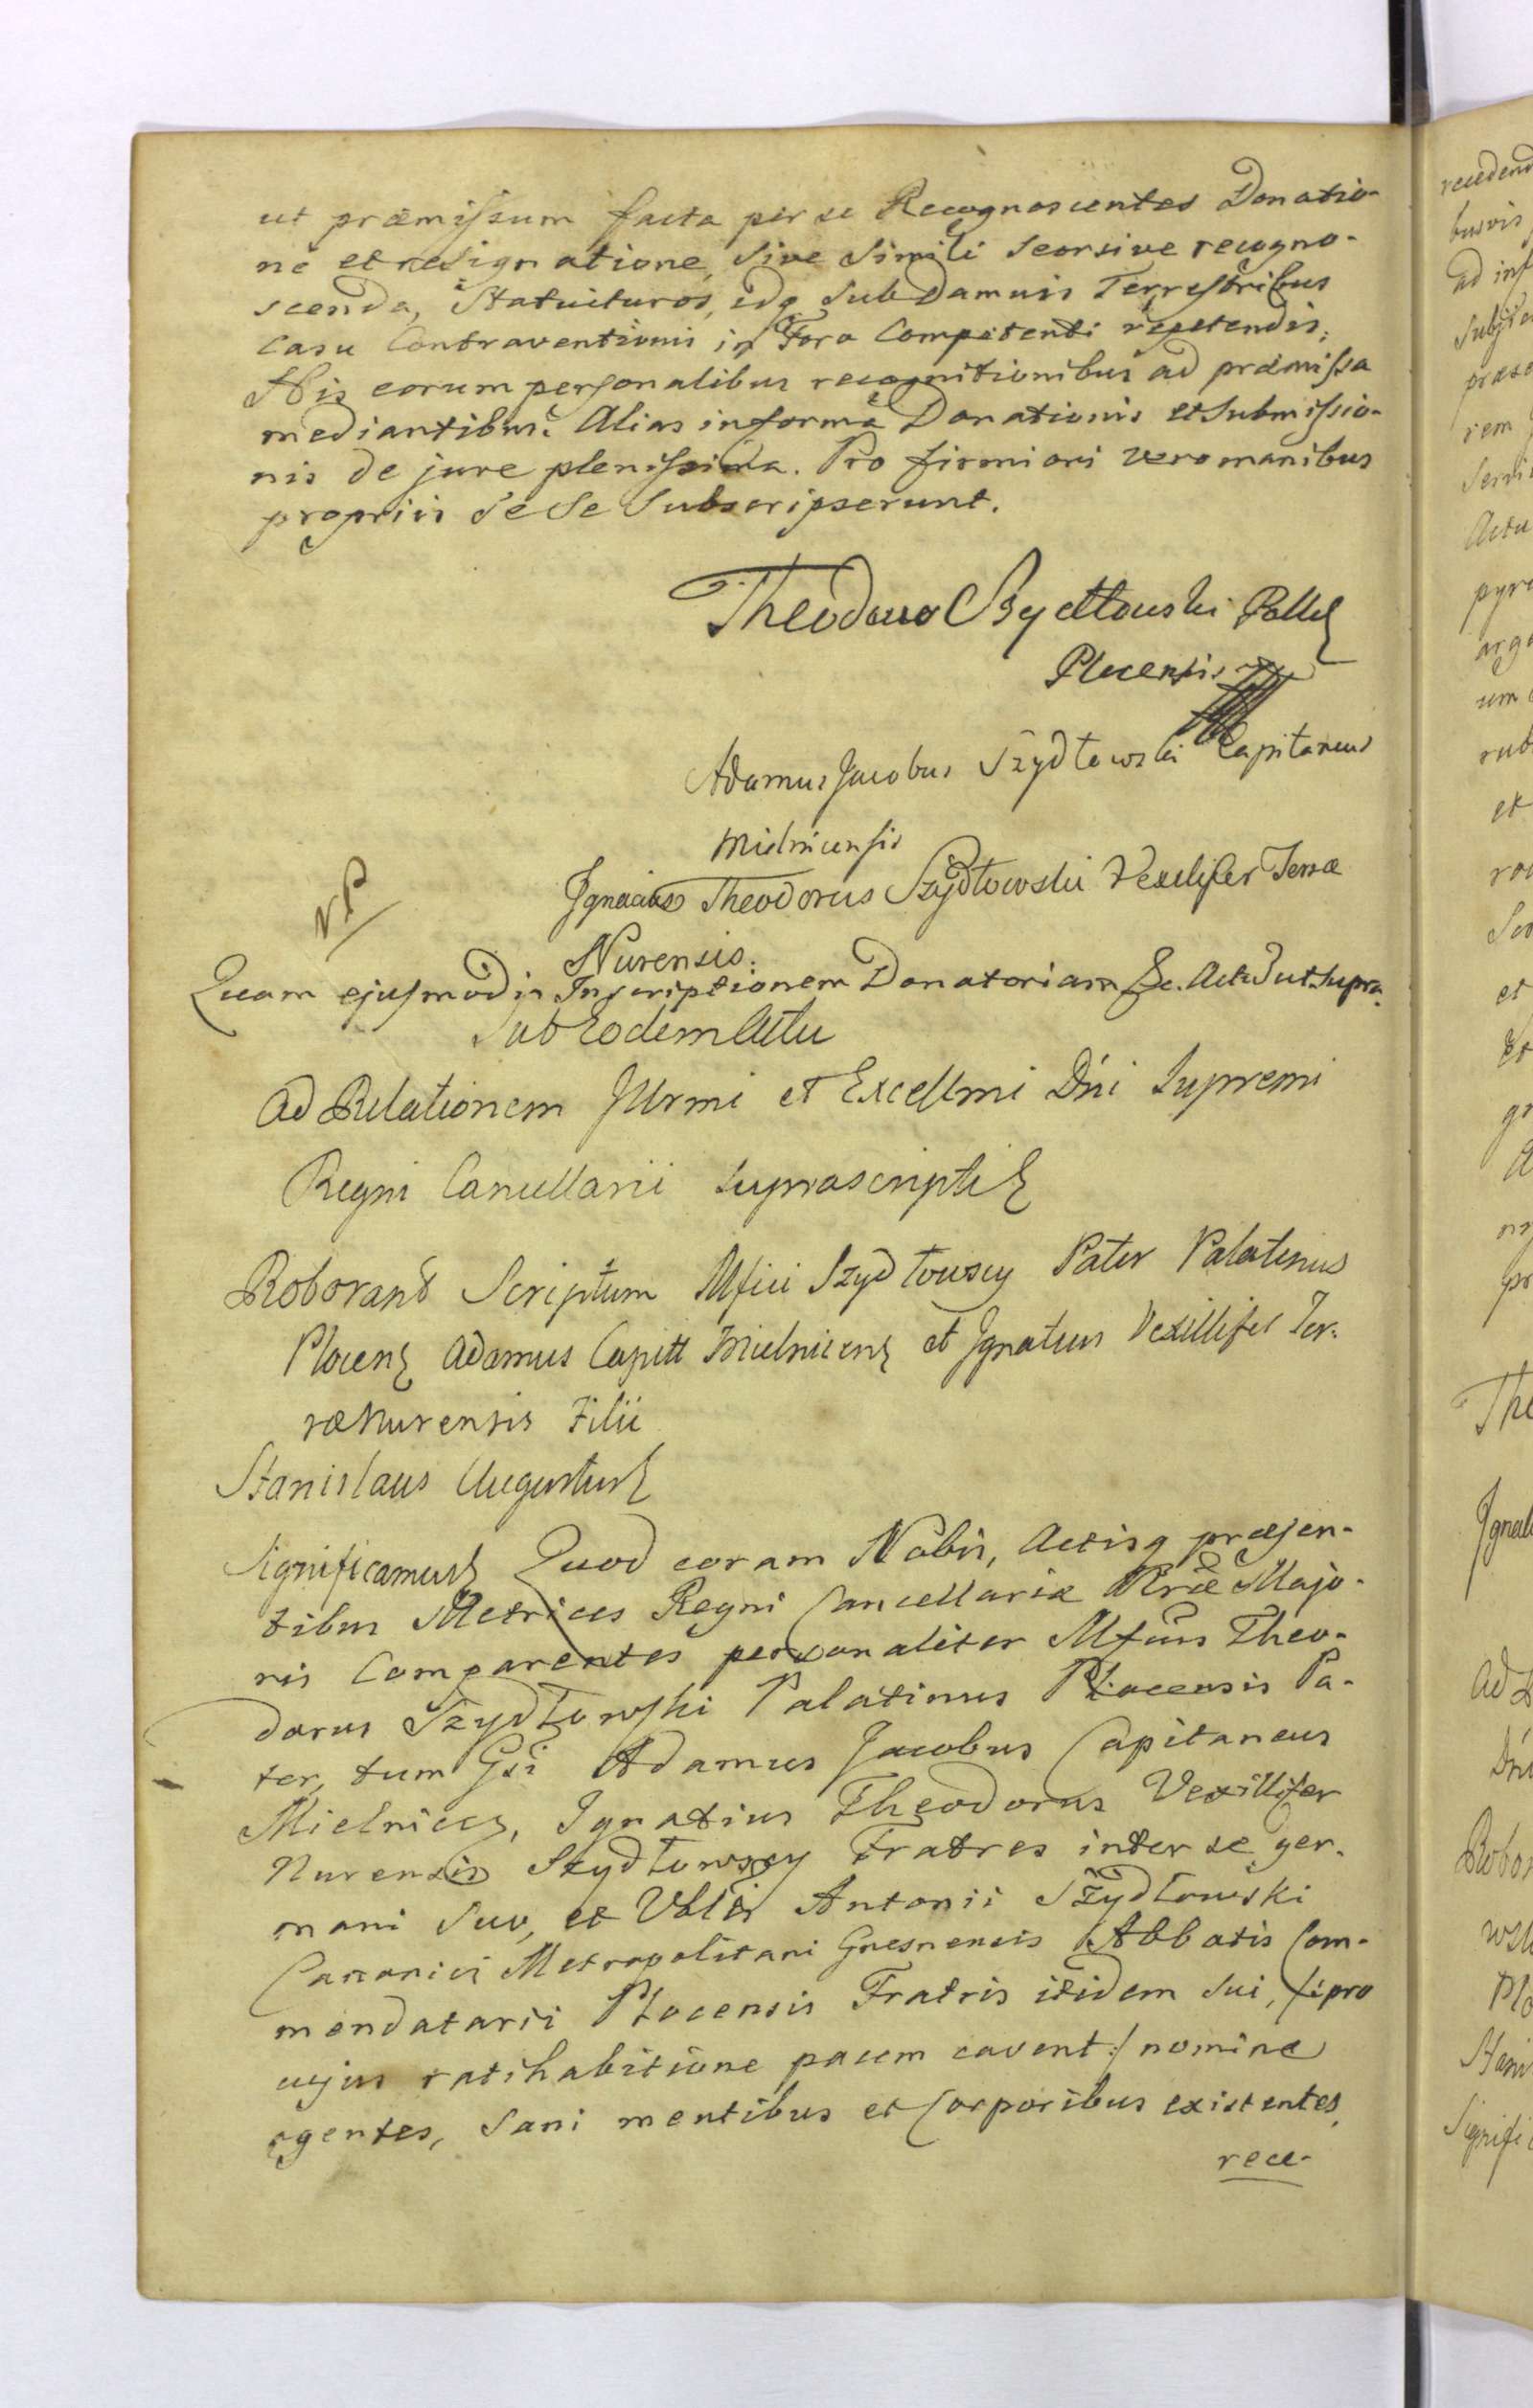 ut præmissum facta per se Recognoscentes Donatio-
ne et resignatione, sive simili seorsive recogno-
scenda, Statuituros, idq sub Damnis Terrestribus
casu Contraventionis in Foro Competenti repetendis;
His eorum personalibus recognitionibus ad præmissa
mediantibus. Alias in forma Donationis et submissio-
nis de jure plenissima. Pro firmiori vero manibus
propriis sese subscripserunt.
Theodorus Szydłowski Palls
Plocensis
Adamus Jacobus Szydłowski Capitaneus
Mielnicensis
Ignacius Theodorus Szydłowski Vexilifer Terræ
Nurensis.
NP
Quam ejusmodi Inscriptionem Donatoriam &c. Actu ut supra.
Sub Eodem Actu
Ad Relationem Illrmi et Excellmi Dni Supremi
Regni Cancellarii suprascripti
Roborant Scriptum Mfici Szydłowscy Pater Palatinus
Plocens Adamus Capitt Mielnicens et Ignatius Vexillifer Ter-
ræ Nurensis Filii
Stanislaus Augustus
Significamus Quod coram Nobis, Actisq præsen-
tibus Metrices Regni Cancellariæ Rriæ Majo-
ris Comparentes personaliter Mfcus Theo-
dorus Szydłowski Palatinus Plocensis Pa-
ter, tum Gsi Adamus Jacobus Capitaneus
Mielnices, Ignatius Theodorus Vexillifer
Nurensis Szydłowscy Fratres inter se ger-
mani suo, et Antonii Szydłowski
Canonici Metropolitani Gnesnensis Abbatis Com-
mendatarii Plocensis Fratris itidem sui, /:pro
cujus ratihabitione pacem cavent:/ nomine
agentes, sani mentibus et Corporibus existentes,
rece-